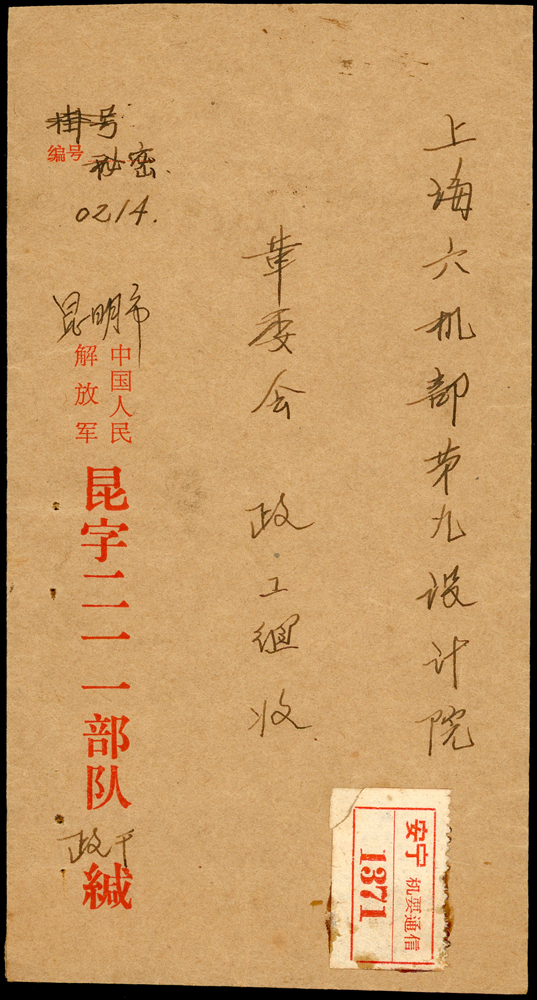 上海六机部第九设计院
革委会 政工组收
挂号
编号
秘密
0214.
昆明市
中国人民
解放军
昆字二一一部队
政干
缄
安宁 机要通信
1371